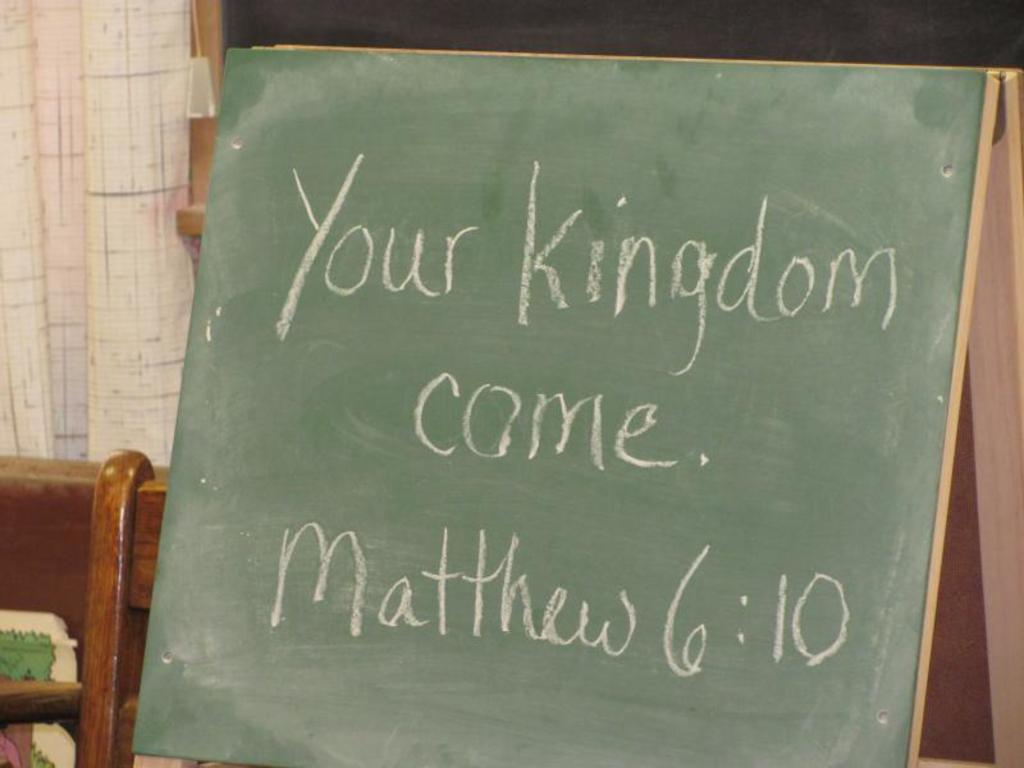 Your kingdom
come.
Matthew 6:10